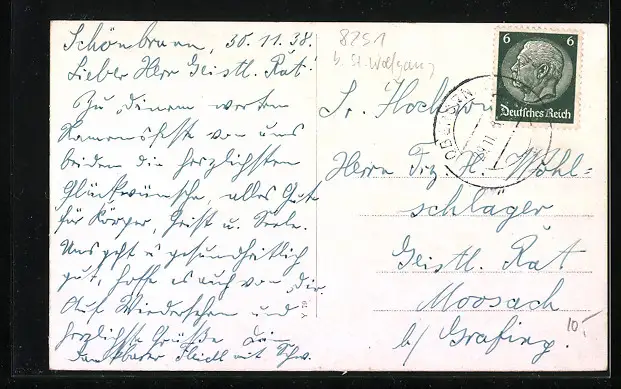 Schönbrunn, 30.11.38.
Lieber Herr Geistl. Rat!
Zu Deinem werten
Namensfeste von uns
beiden die herzlichsten
Glückwünsche, alles Gute
für Körper, Geist u. Seele.
Uns geht's gesundheitlich
gut, hoffe es auch von Dir.
Auf Wiedersehen und
herzlichste Grüße Dein
dankbarer Fleidl mit Schw.
8251
b. St. Wolfgang
6 6
Deutsches Reich
Sr. Hochw
Herrn Frz. X. Wohl=
schläger
Geistl. Rat
Moosach
b/ Grafing.
10.-